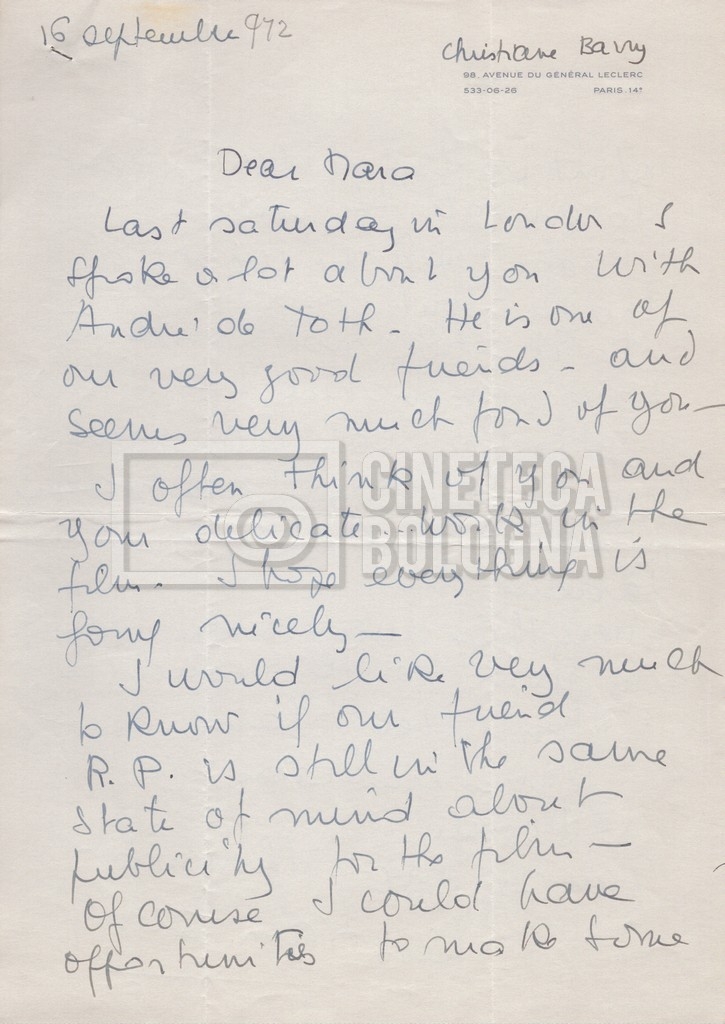 16 septembre 972
Christiane Barry
98. AVENUE DU GÉNÉRAL LECLERC
533-06-26 PARIS.14e
Dear Mara
Last saturday in London I
spoke a lot about you with
André de Toth - He is one of
our very good friends - and
seems very much fond of you -
I often think of you and
your delicate.. work in the
film. I hope everything is
going nicely -
I would like very much
to know if our friend
R. P. is still in the same
state of mind about
publicity for the film -
Of course I could have
opportunities to make some
CINETECA
BOLOGNA